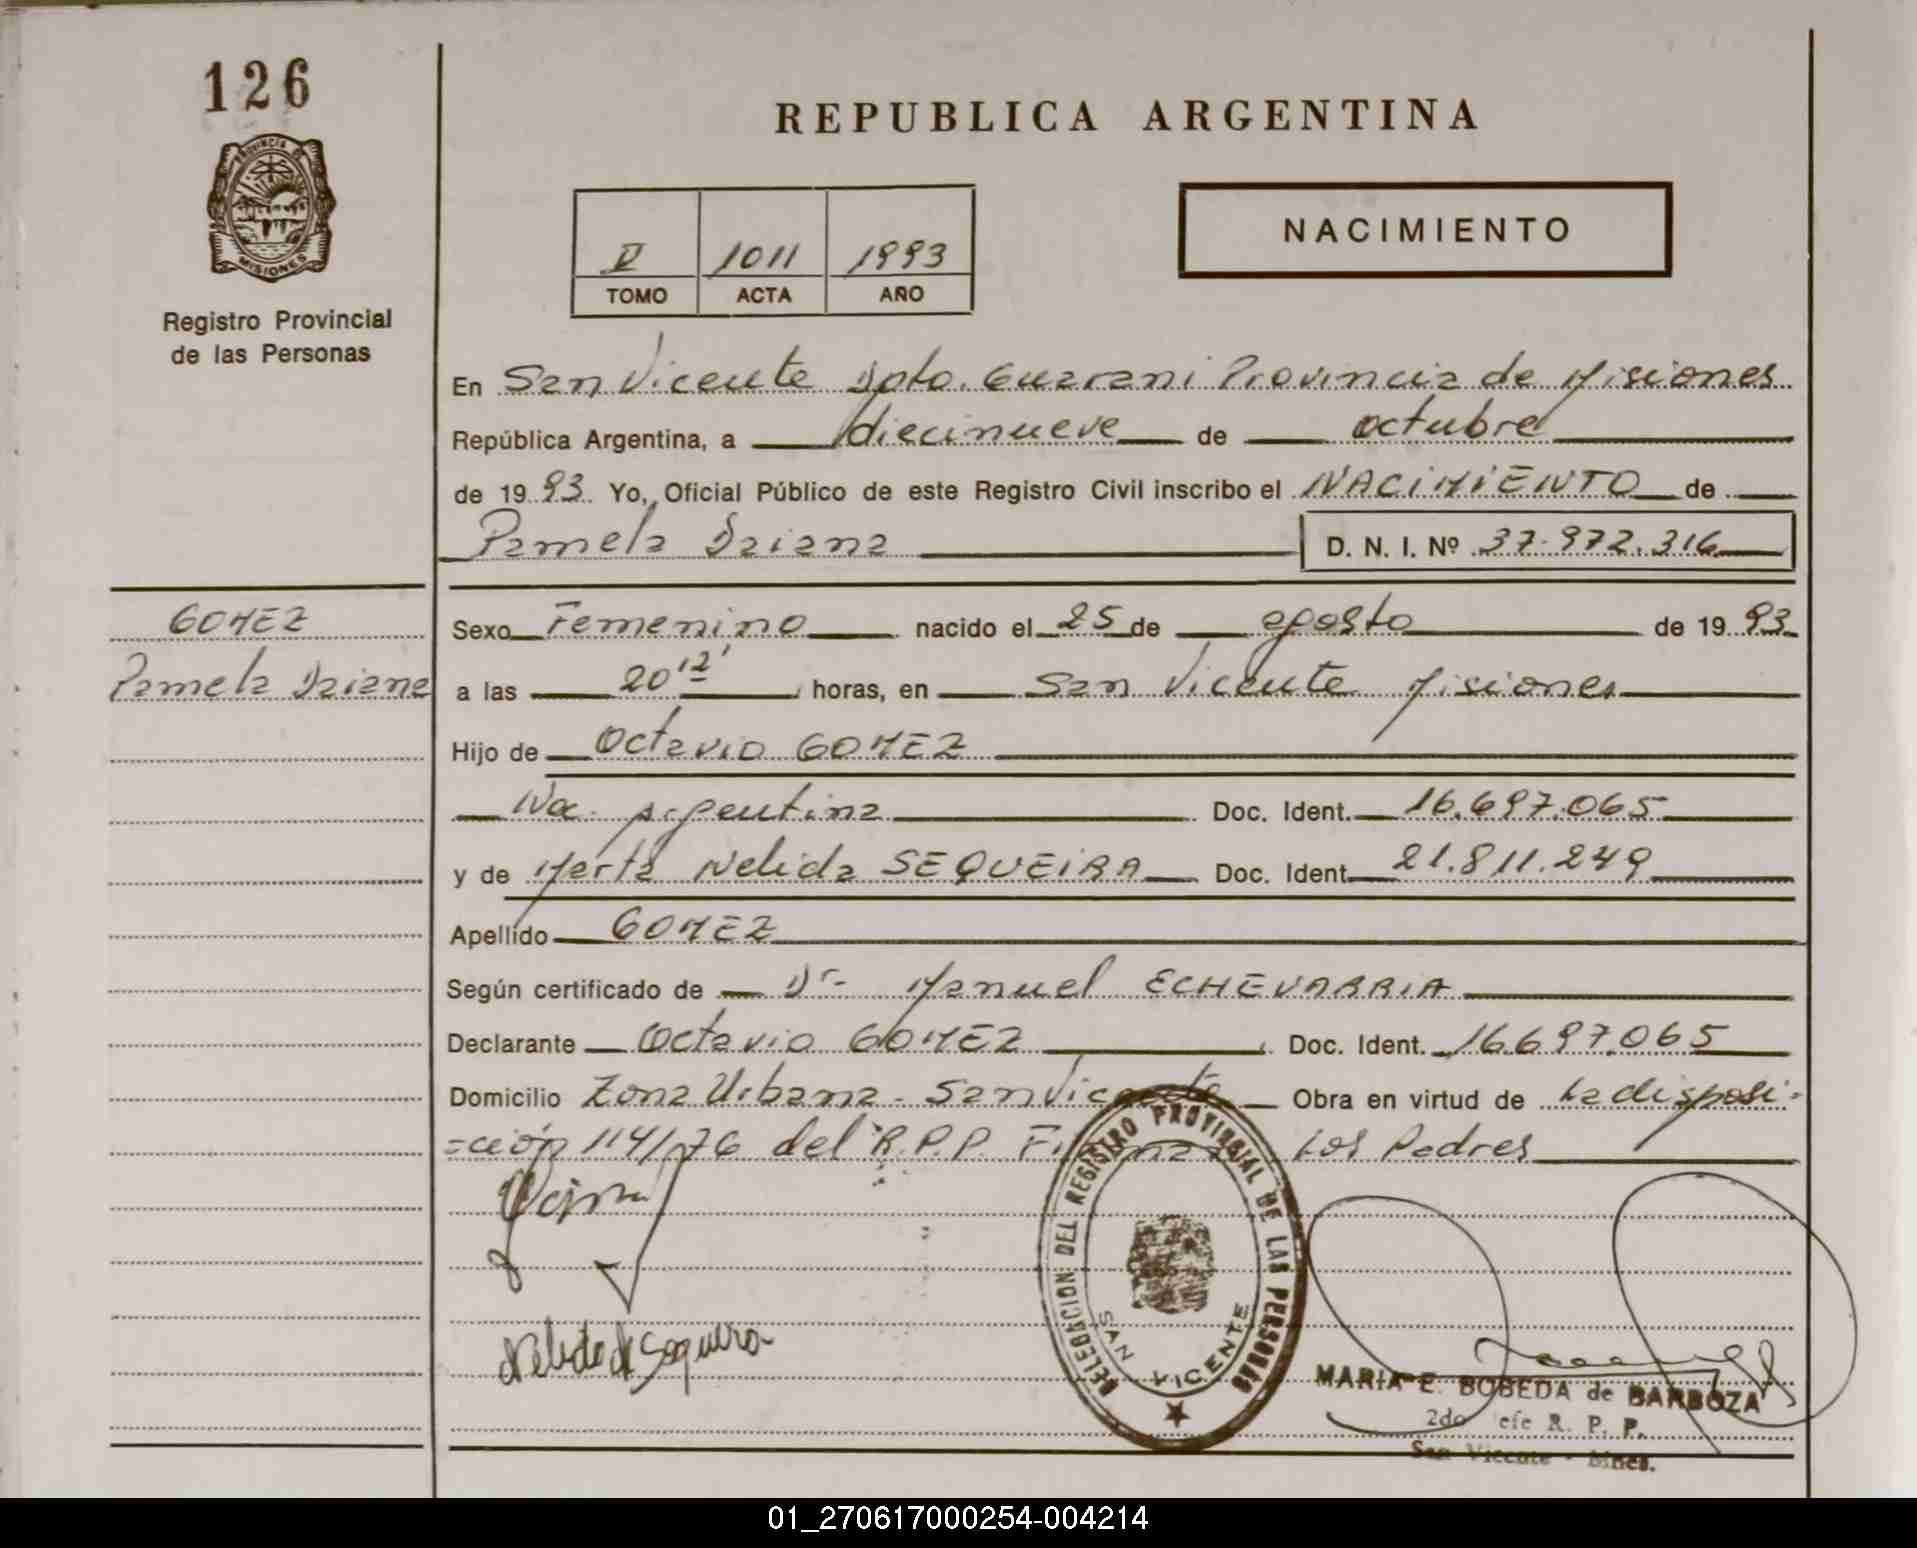 126
PROVINCIA DE
MISIONES
Registro Provincial
de las Personas
REPUBLICA ARGENTINA
V 1011 1993
TOMO ACTA AÑO
NACIMIENTO
En San Vicente Dpto. Guarani Provincia de Misiones
República Argentina, a diecinueve de octubre
de 19 93 Yo, Oficial Público de este Registro Civil inscribo el NACIMIENTO de
Pamela Daiana D. N. I. Nº 37.972.316
GOMEZ
Pamela Daiana
Sexo Femenino nacido el 25 de agosto de 19 93
a las 20 12' horas, en San Vicente Misiones
Hijo de Octavio GOMEZ
Nac. Argentina Doc. Ident. 16.697.065
y de Marta Nelida SEQUEIRA Doc. Ident. 21.811.249
Apellido GOMEZ
Según certificado de Dr- Manuel ECHEVARRIA
Declarante Octavio GOMEZ Doc. Ident. 16.697.065
Domicilio Zona Urbana - San Vicente Obra en virtud de La disposi-
-ción 114/76 del R.P.P. Firman Los Padres
DELEGACION DEL REGISTRO PROVINCIAL DE LAS PERSONAS
SAN VICENTE
Nelida Sequeira
MARIA E. BOBEDA de BARBOZA
2do Jefe R. P. P.
San Vicente - Mnes.
01_270617000254-004214